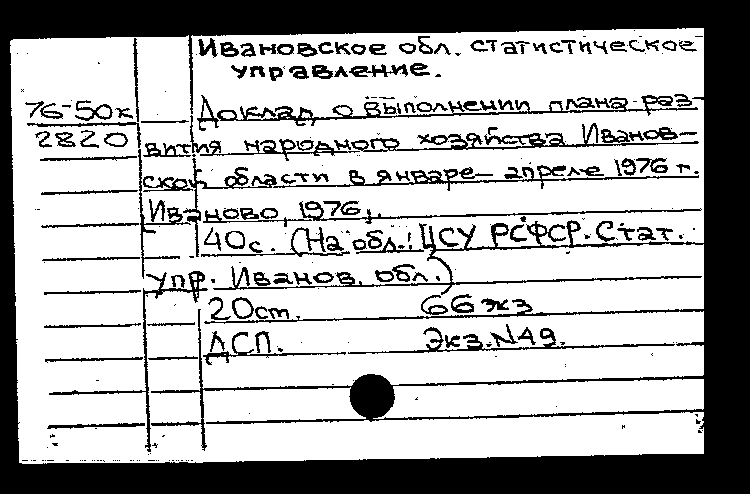 Ивановское обл. статистическое
управление.
76-50к
2820
Доклад о выполнении плана раз-
вития народного хозяйства Иванов-
ской области в январе – апреле 1976 г.
Иваново, 1976,.
40с. (На обл.: ЦСУ РСФСР. Стат.
упр. Иванов. обл.)
20ст. 66экз
ДСП. Экз.N49.